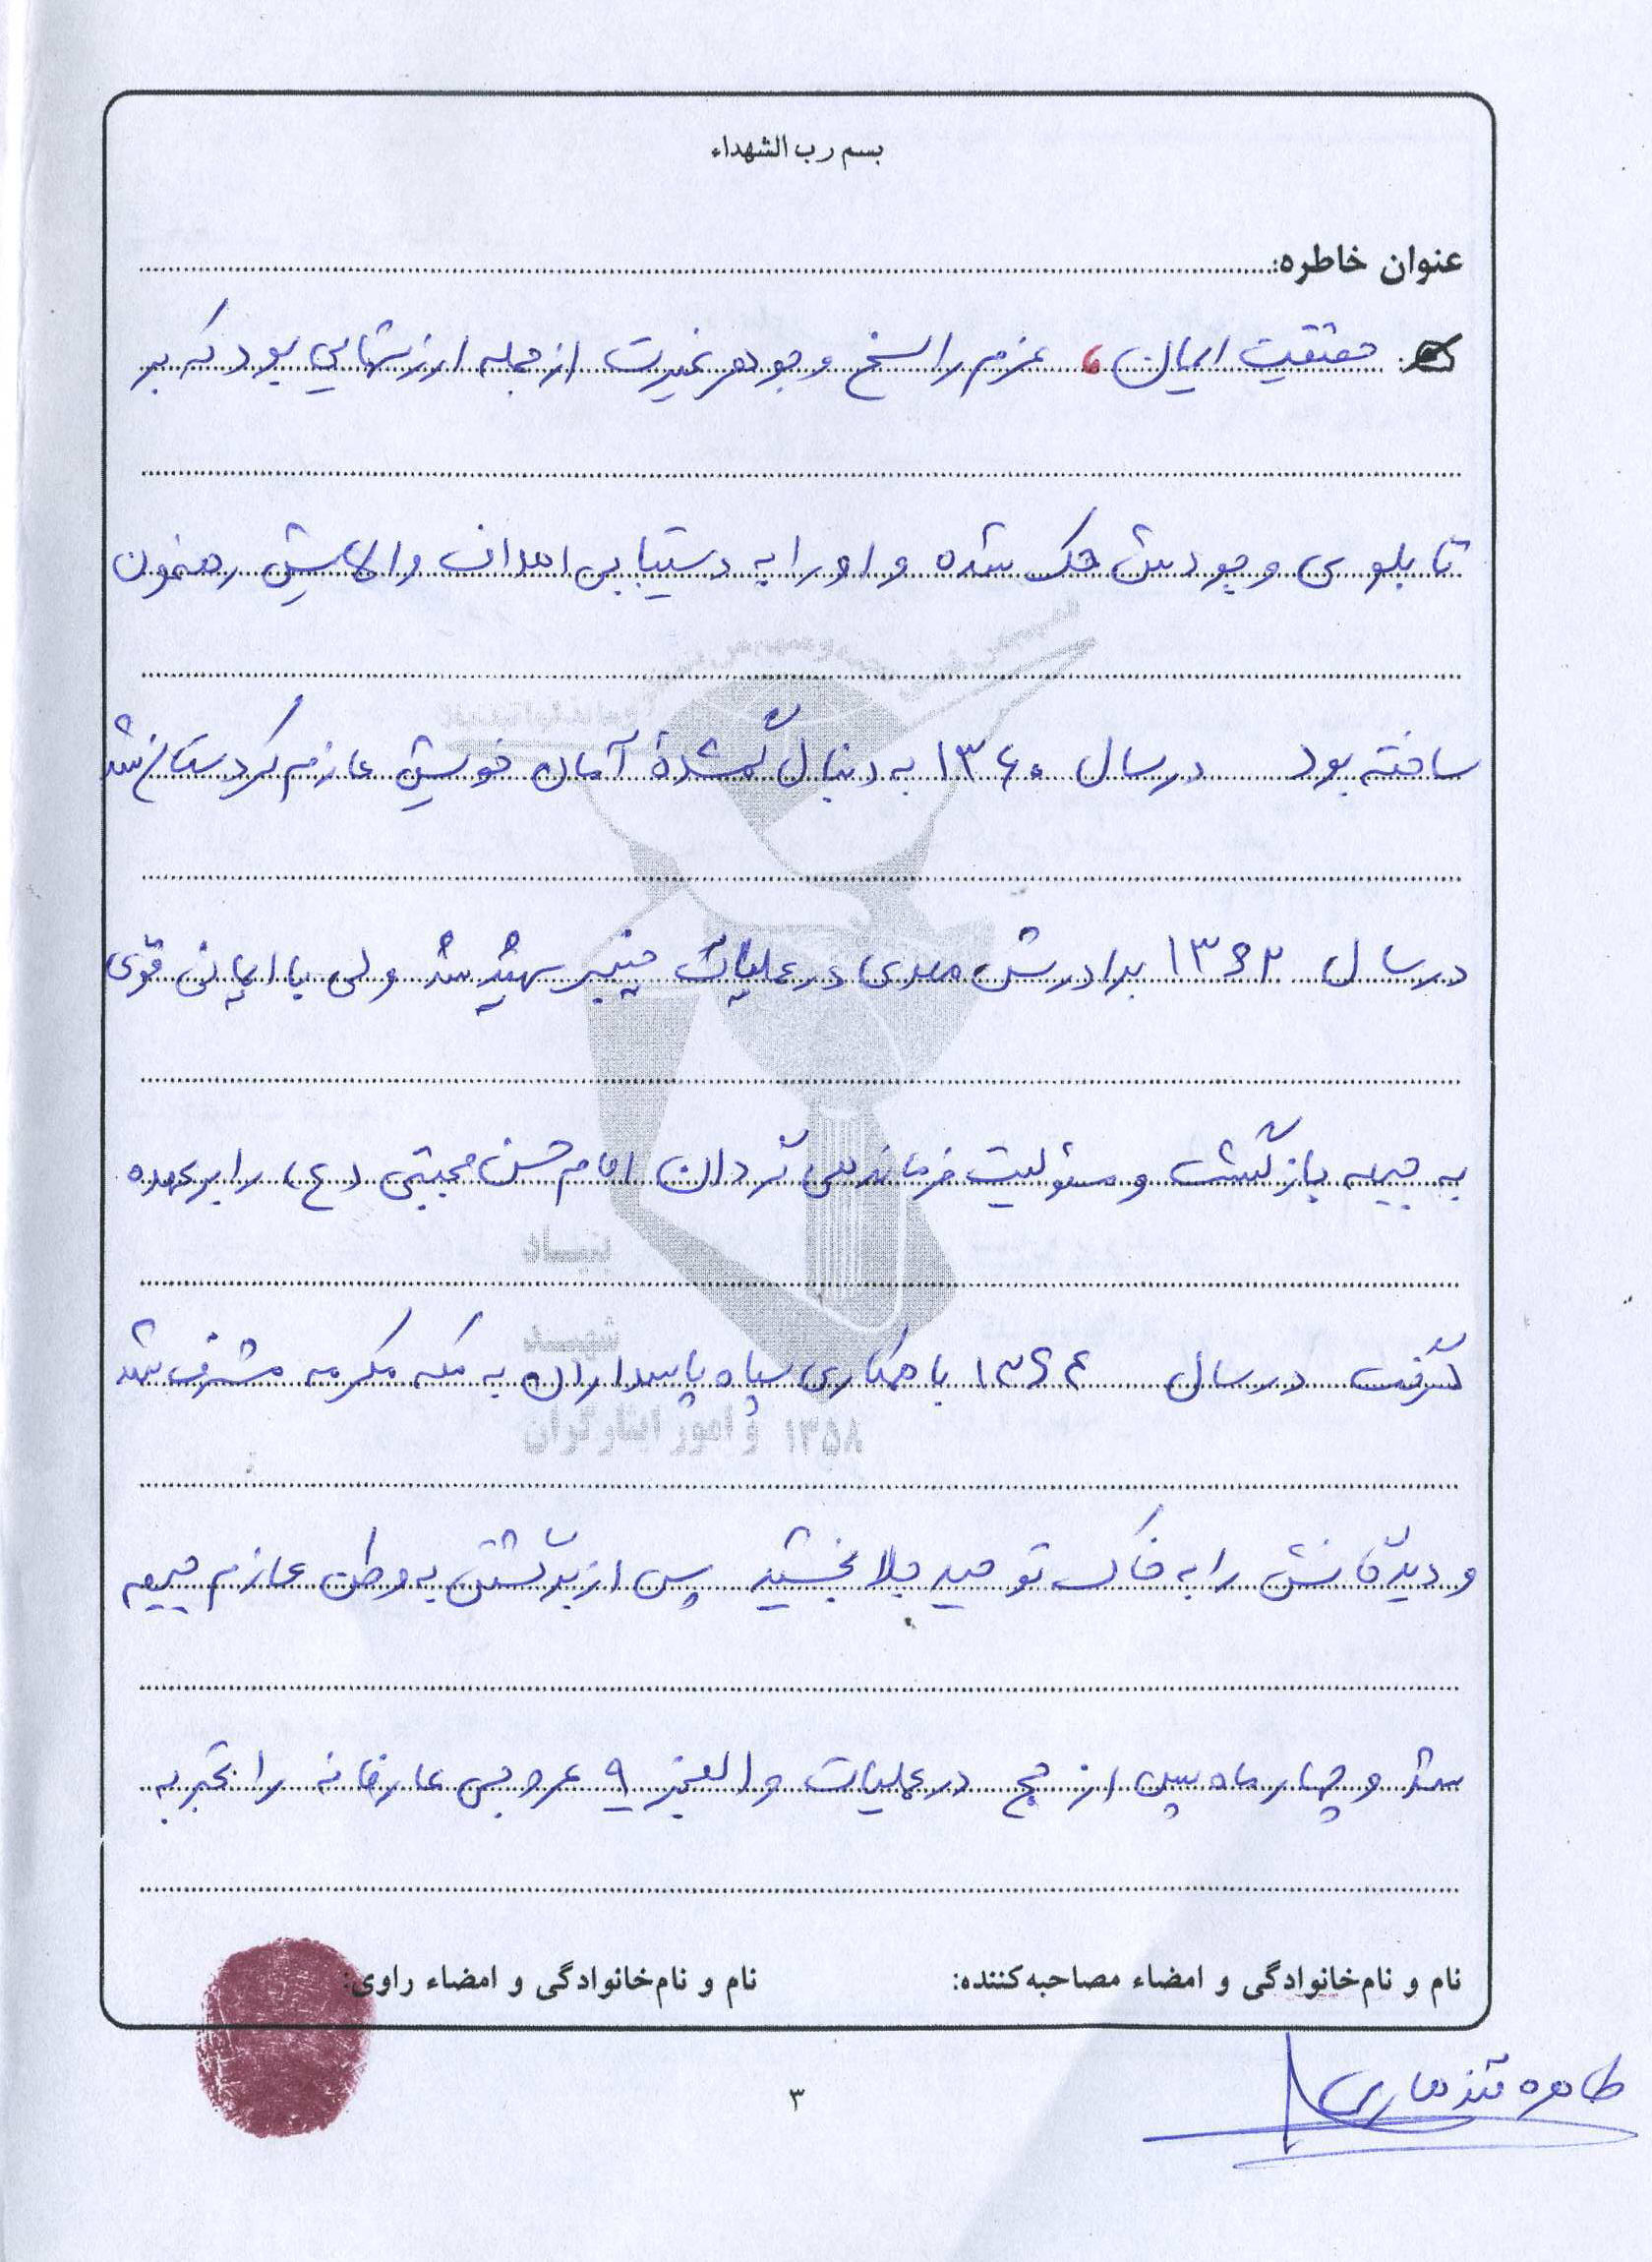 بسم رب الشهداء
عنوان خاطره:
حقیقت ایمان، عزم راسخ وجوهر غیرت از جمله ارزشهایی بود که بر
تابلوی وجودش حک شده و او را به دستیابی اهداف والایش رهنمون
ساخته بود در سال ۱۳۶۰ به دنبال گمشدهٔ آمان خویش عازم کردستان شد
در سال ۱۳۶۲ برادرش مهدی در عملیات خیبر شهید شد ولی با ایمانی قوی
به جبهه بازگشت و مسئولیت فرماندهی گردان امام حسن مجتبی (ع) را بر عهده
گرفت در سال ۱۳۶۴ با همکاری سپاه پاسداران به مکه مکرمه مشرف شد
و دیدگانش را به خاک توحید جلا بخشید پس از برگشتن به وطن عازم جبهه
شد و چهار ماه پس از حج در عملیات والفجر ۹ عروجی عارفانه را تجربه
نام و نام‌خانوادگی و امضاء مصاحبه‌کننده:
نام و نام‌خانوادگی و امضاء راوی:
طاهره قندهاری
۳
بنیاد
شهید
و امور ایثارگران ۱۳۵۸